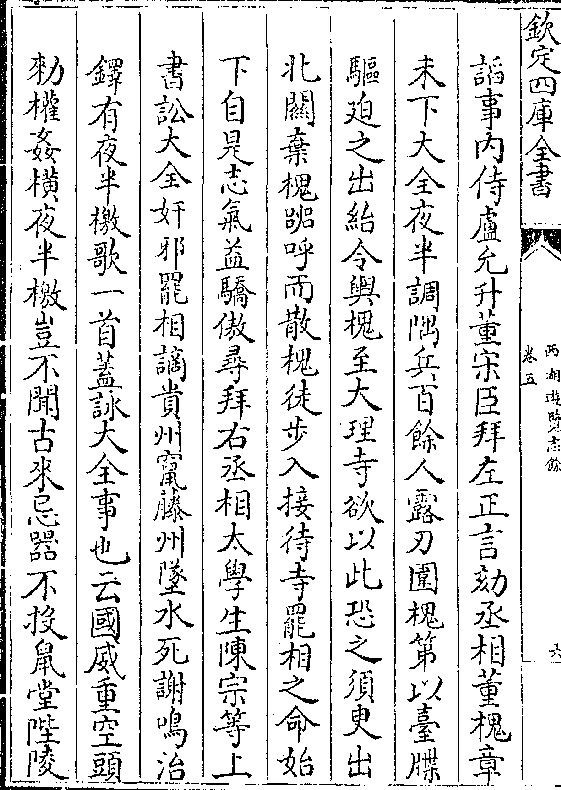 欽定四庫全書
西湖遊覽志餘
卷五
六
諂事內侍盧允升董宋臣拜左正言劾丞相董槐章
未下大全夜半調隅兵百餘人露刃圍槐第以臺牒
驅迫之出紿令輿槐至大理寺欲以此恐之須臾出
北關棄槐㘎呼而散槐徒步入接待寺罷相之命始
下自是志氣益驕傲尋拜右丞相太學生陳宗等上
書訟大全奸邪罷相謫貴州竄藤州墜水死謝鳴治
鐸有夜半檄歌一首蓋詠大全事也云國威重空頭
勑權姦橫夜半檄豈不聞古來忌器不投鼠堂陛陵